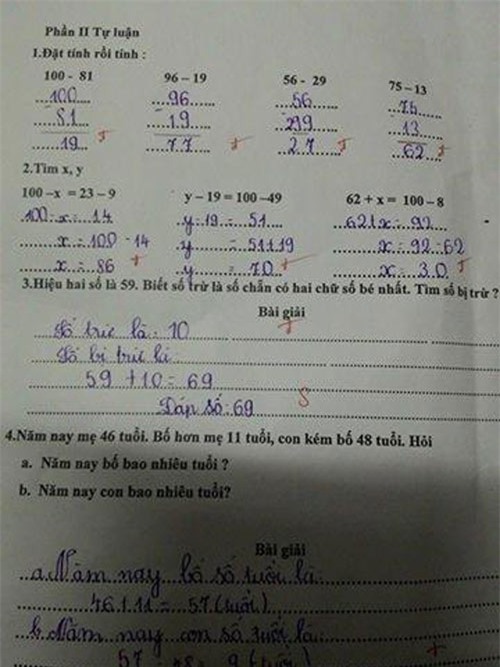 Phần II Tự luận
1.Đặt tính rồi tính :
100 - 81 96 – 19 56 - 29 75 – 13
100 96 56 75
81 19 299 13
19 77 27 62
2.Tìm x, y
100 –x = 23 – 9 y – 19 = 100 –49 62 + x = 100 – 8
100-x = 14 y-19 = 51 62+x = 92
x = 100 - 14 y = 51+19 x = 92-62
x = 86 y = 70 x = 30
3.Hiệu hai số là 59. Biết số trừ là số chẵn có hai chữ số bé nhất. Tìm số bị trừ ?
Bài giải
Số trừ là: 10
Số bị trừ là
59 + 10 = 69
Đáp số: 69
S
4.Năm nay mẹ 46 tuổi. Bố hơn mẹ 11 tuổi, con kém bố 48 tuổi. Hỏi
a. Năm nay bố bao nhiêu tuổi ?
b. Năm nay con bao nhiêu tuổi?
Bài giải
a.Năm nay bố số tuổi là:
46+11 = 57 (tuổi)
b.Năm nay con số tuổi là
57 - 48 = 9 (tuổi)